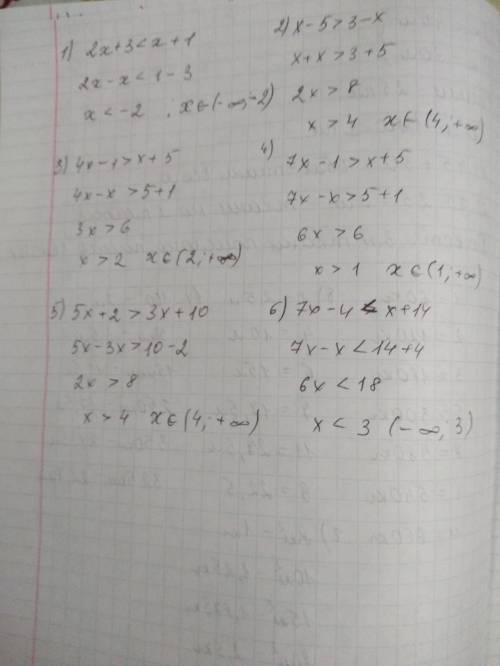 1) 2x+3<x+1
2x-x<1-3
x<-2 ; x∈(-∞;-2)
2) x-5>3-x
x+x>3+5
2x>8
x>4 x∈(4;+∞)
3) 4x-1>x+5
4x-x>5+1
3x>6
x>2 x∈(2;+∞)
4) 7x-1>x+5
7x-x>5+1
6x>6
x>1 x∈(1;+∞)
5) 5x+2>3x+10
5x-3x>10-2
2x>8
x>4 x∈(4;+∞)
6) 7x-4<x+14
7x-x<14+4
6x<18
x<3 (-∞;3)